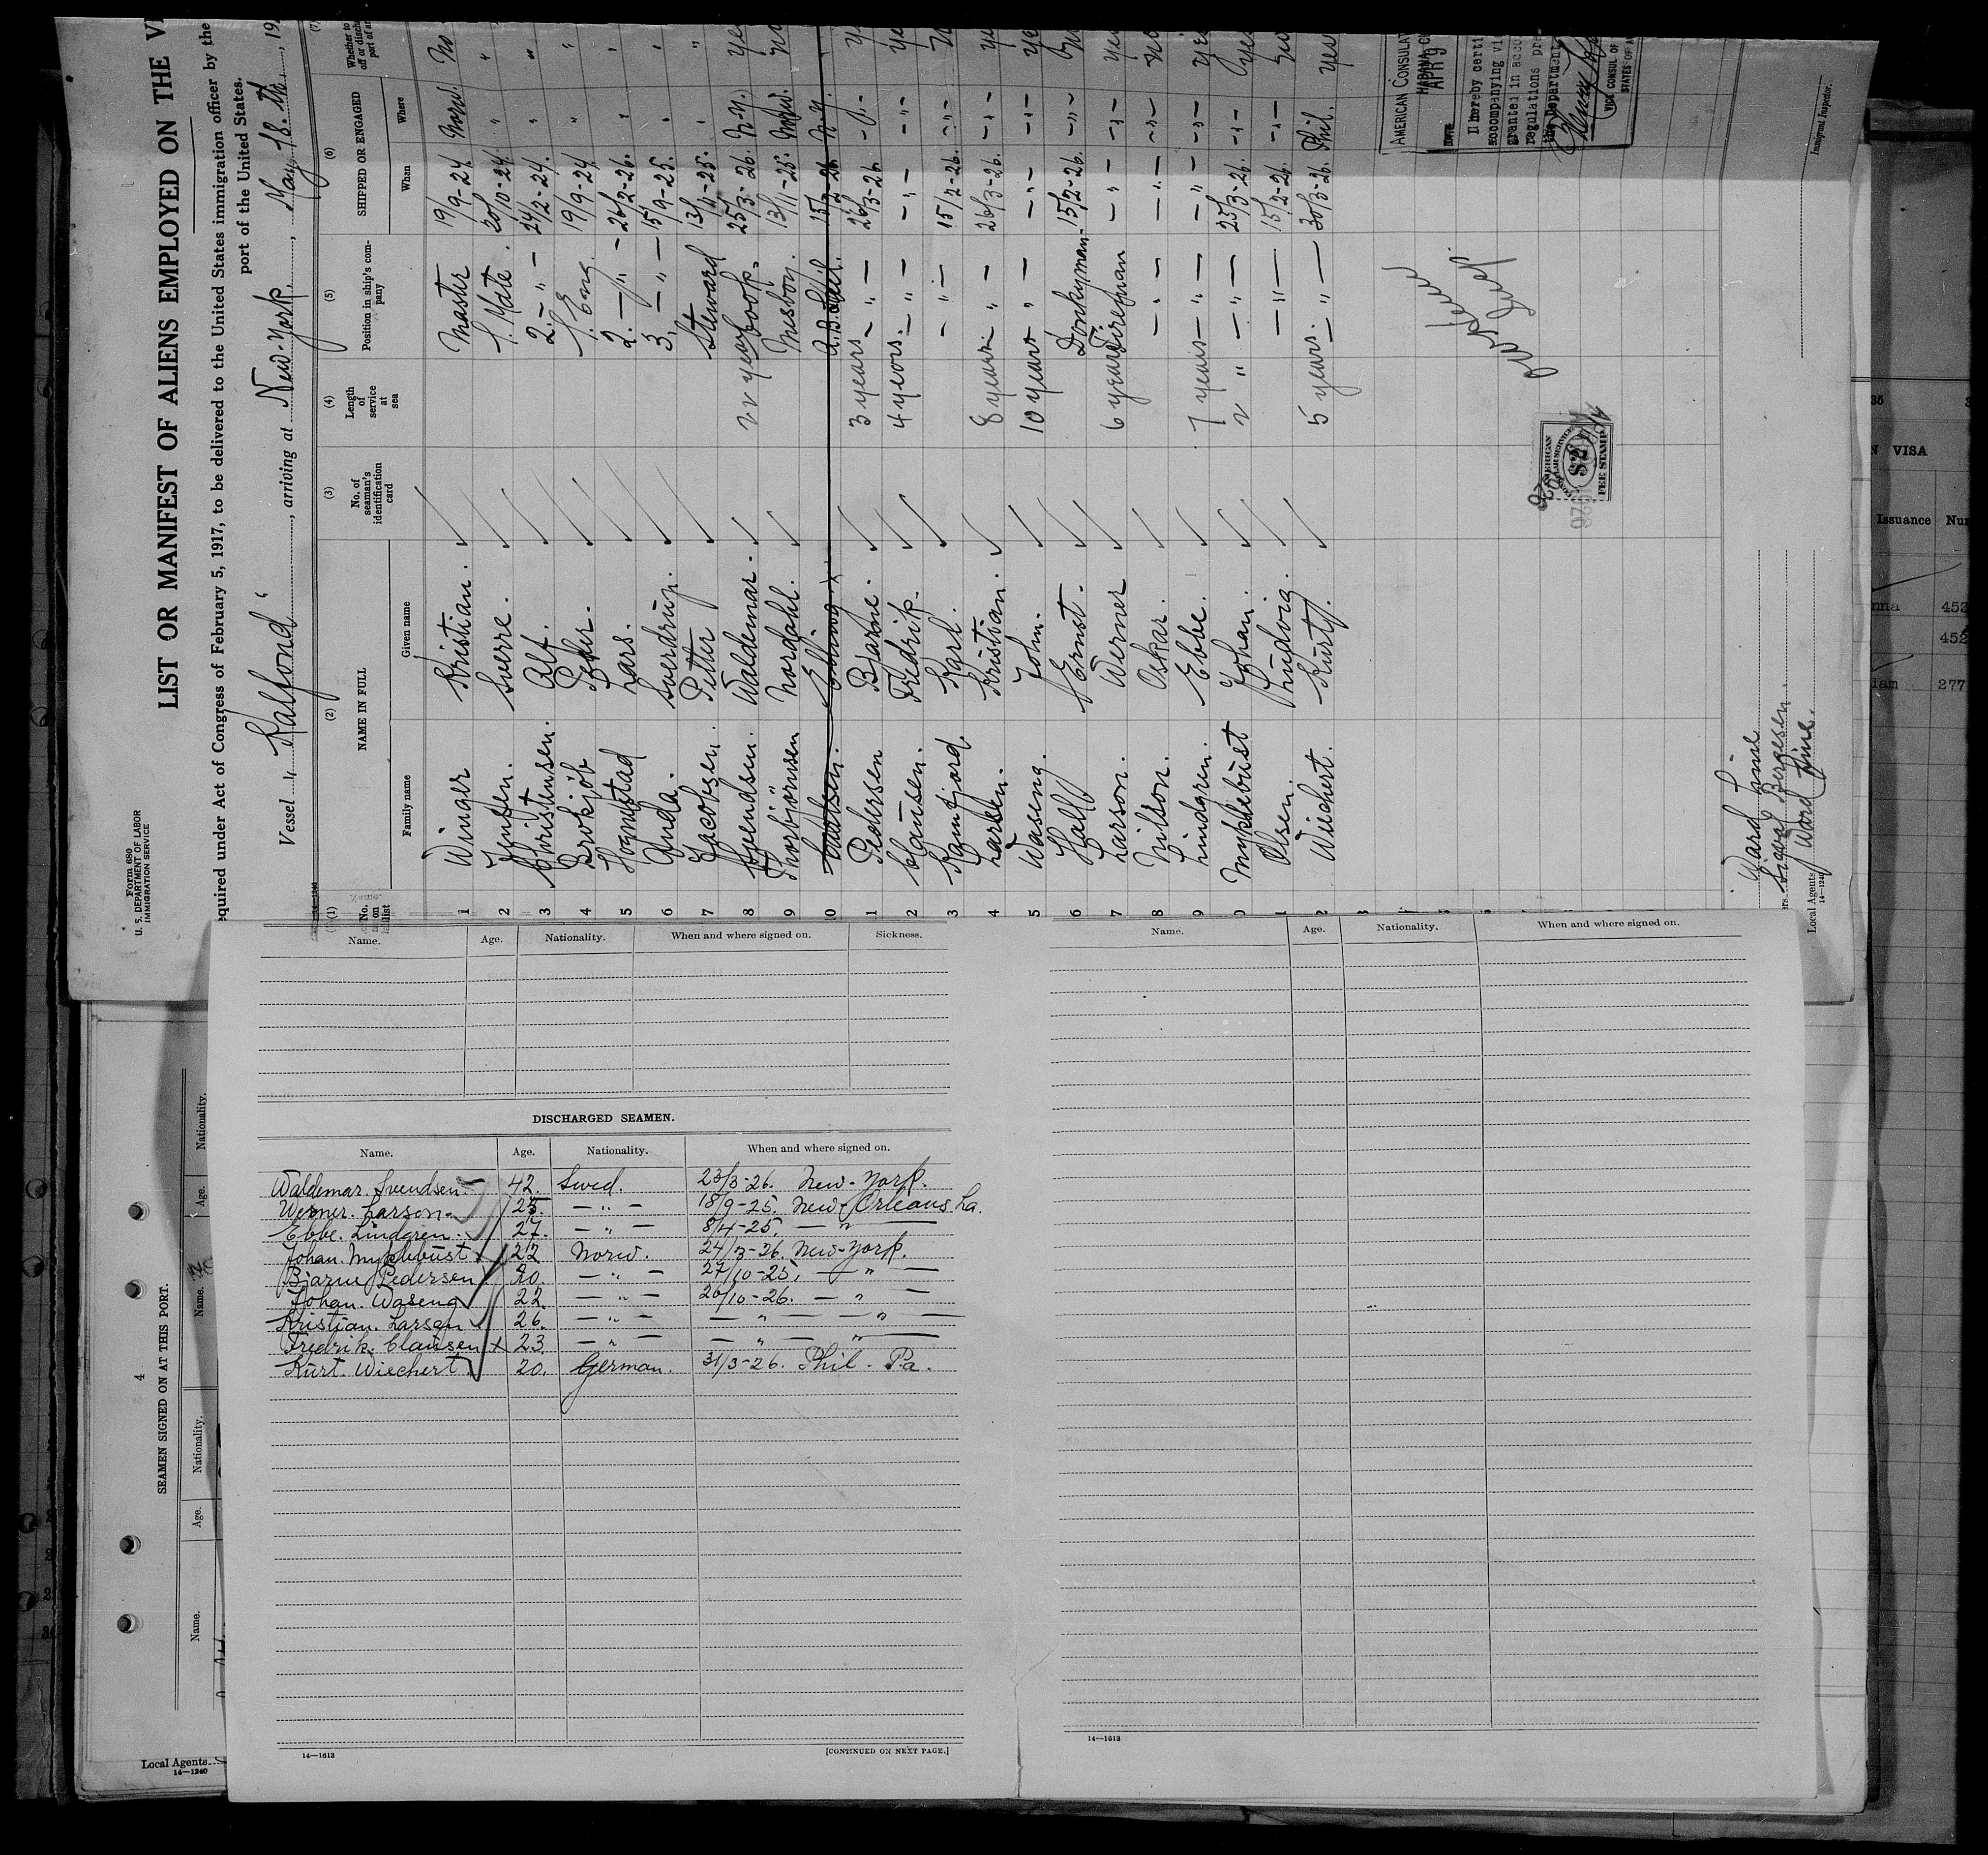 Form 680
U. S. DEPARTMENT OF LABOR
IMMIGRATION SERVICE
LIST OR MANIFEST OF ALIENS EMPLOYED ON THE
equired under Act of Congress of February 5, 1917, to be delivered to the United States immigration officer by the
port of the United States.
Vessel „ Ralfond “, arriving at New-York, May 18.th, 19
(1) (2) (3) (4) (5) (6) (7)
No. on list NAME IN FULL No. of seaman's identification card Length of service at sea Position in ship's company SHIPPED OR ENGAGED Whether to
Family name Given name When Where
1 Winger Kristian. ✓ Master 19/9-24 Norw. No
2 Jensen. Sverre. ✓ 1. Mate. 20/10-24 " "
3 Christensen. Alf. ✓ 2. - " - 24/2-24. " "
4 Brokjøb Peder. ✓ 1. Eng. 19/9-24 " "
5 Hognstad Lars. ✓ 2. - " - 26/2-26. " "
6 Anda. Sverdrup. ✓ 3. - " - 15/9-25. " "
7 Jacobsen. Pether ✓ Steward 13/11-25. " "
8 Svendsen. Waldemar. ✓ 22 years Cook. 25/3-26. N-Y. ye
9 Thorbjørnsen Nordahl. ✓ Messboy. 13/11-25. Norw. no
0 Erling. x A.B. Sail. 15/2-26 N.Y.
1 Pedersen Bjarne. ✓ 3 years - " - 26/3-26. - " - ye
2 Clausen. Fredrik. ✓ 4 years. - " - - " - - " - ye
3 Ramfjord. Karl. ✓ - " - 15/2-26. - " - no
4 Larsen. Kristian. ✓ 8 years - " - 26/3-26. - " - ye
5 Waseng. John. ✓ 10 years - " - - " - - " - ye
6 Hall Ernst. ✓ Donkyman. 15/2-26. - " - no
7 Larson. Werner ✓ 6 years Fireman - " - - " - ye
8 Nilson. Oskar. ✓ - " - - " - - " - no
9 Lindgren. Ebbe. ✓ 7 years - " - - " - - " - yes
0 Myklebust Johan. ✓ 2 " - " - 25/3-26. - " - yes
1 Olsen. Ludvig. ✓ - " - 15/2-26. - " - no
2 Wiechert. Kurt. ✓ 5 years. - " - 30/3-26. Phil. yes
AMERICAN CONSULAT
HABANA, CU
APR 9
DATE
I hereby certi
accompanying vi
granted in acco
regulations pre
the Department
VICE CONSUL OF
STATES OF A
AMERICAN
CONSULAR SERVICE
$2
FEE STAMP
Immigrant Inspector.
Ward Line
Sigval Bergesen.
Local Agents Ward Line.
14—1240
Name. Age. Nationality. When and where signed on. Sickness.
DISCHARGED SEAMEN.
Name. Age. Nationality. When and where signed on.
Waldemar. Svendsen. 42. Swed. 23/3-26. New-York.
Werner. Larson. 25. - " - 18/9-25. New-Orleans La.
Ebbe. Lindgren. 27. - " - 8/4-25. - " -
Johan. Myklebust 22 Norw. 24/3-26. New-York.
Bjarne Pedersen 20. - " - 27/10-25. - " -
Johan. Waseng 22. - " - 20/10-26. - " -
Kristian. Larsen 26. - " - - " - - " -
Fredrik. Clausen x 23. - " - - " - - " -
Kurt. Wiechert 20. German. 31/3-26. Phil. Pa.
14—1613
[CONTINUED ON NEXT PAGE.]
Name. Age. Nationality. When and where signed on.
14—1613
4
SEAMEN SIGNED ON AT THIS PORT.
Name. Age. Nationality. Name. Age. Nationality.
Local Agents
14—1240
35
VISA
Issuance Nu
nna 453
452
lam 277